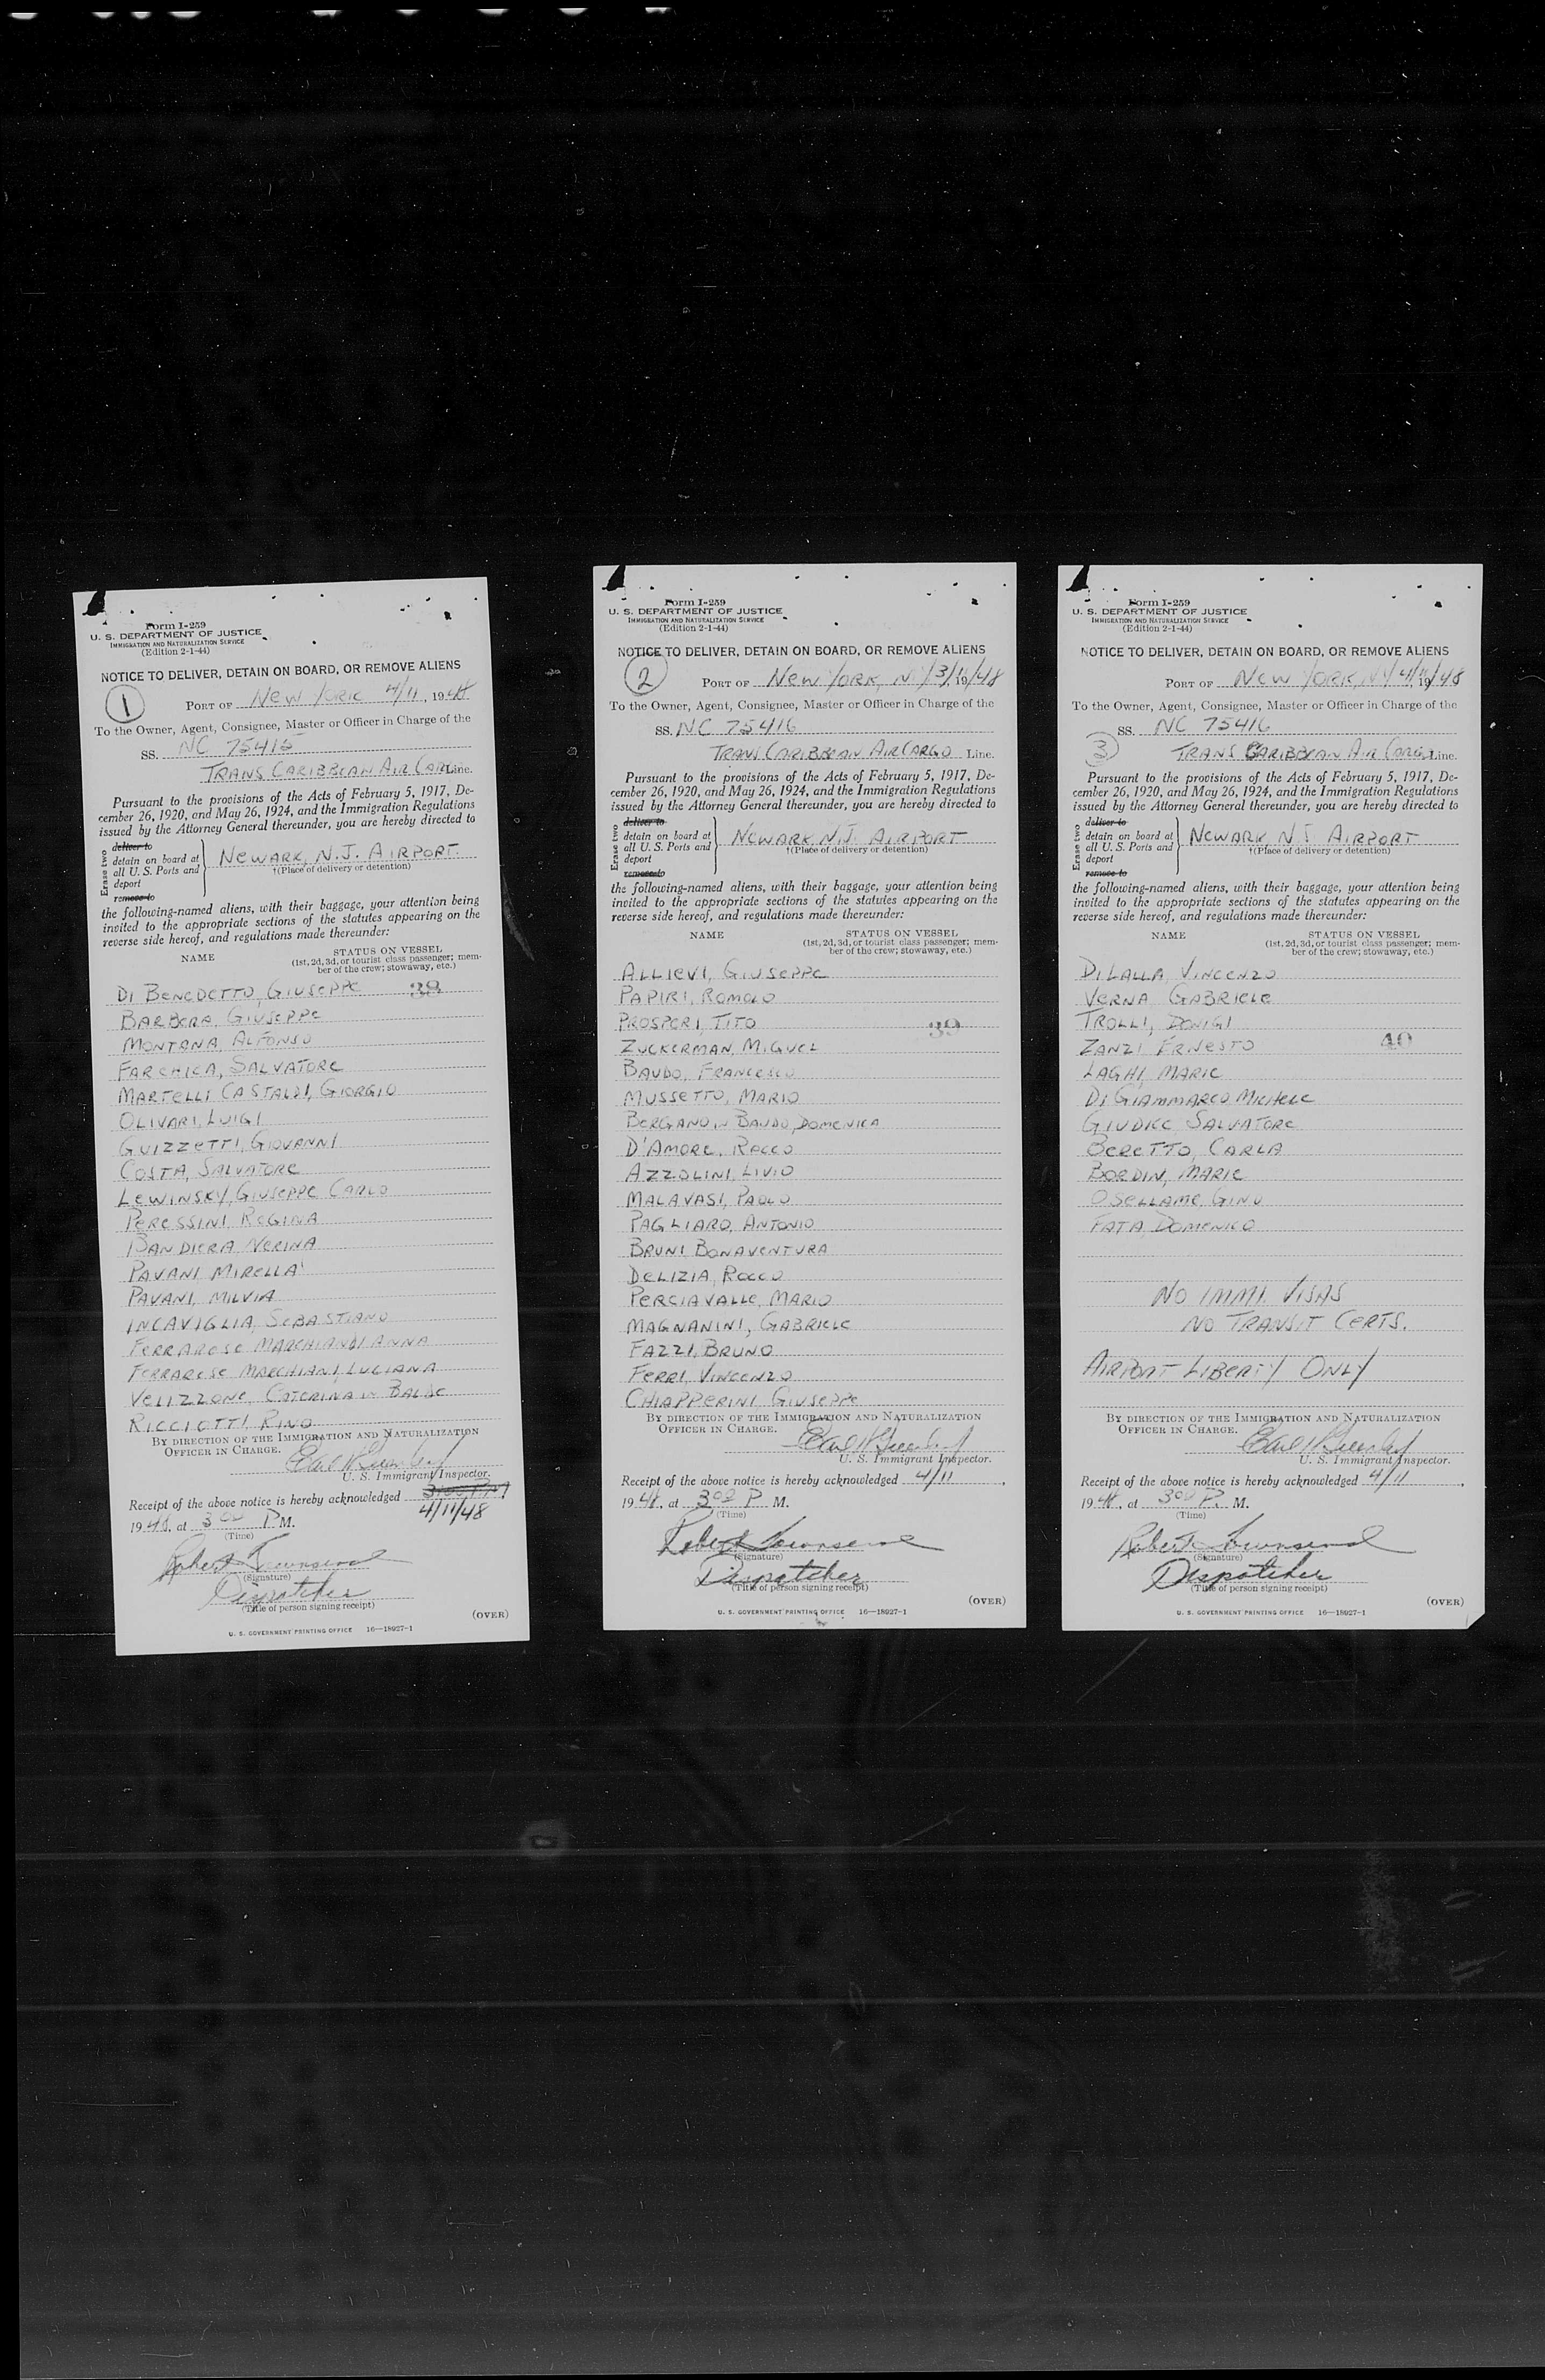 Form I-259
U. S. DEPARTMENT OF JUSTICE
IMMIGRATION AND NATURALIZATION SERVICE
(Edition 2-1-44)
NOTICE TO DELIVER, DETAIN ON BOARD, OR REMOVE ALIENS
1
PORT OF NEW YORK 4/11, 1948
To the Owner, Agent, Consignee, Master or Officer in Charge of the
SS. NC 75415
TRANS CARIBBEAN AIR CAR Line.
Pursuant to the provisions of the Acts of February 5, 1917, De-
cember 26, 1920, and May 26, 1924, and the Immigration Regulations
issued by the Attorney General thereunder, you are hereby directed to
Erase two
deliver to
detain on board at
all U. S. Ports and
deport
remove to
NEWARK, N.J. AIRPORT.
†(Place of delivery or detention)
the following-named aliens, with their baggage, your attention being
invited to the appropriate sections of the statutes appearing on the
reverse side hereof, and regulations made thereunder:
NAME
STATUS ON VESSEL
(1st, 2d, 3d, or tourist class passenger; mem-
ber of the crew; stowaway, etc.)
DI BENEDETTO, GIUSEPPE 38
BARBERA, GIUSEPPE
MONTANA, ALFONSO
FARCHICA, SALVATORE
MARTELLI CASTALDI, GIORGIO
OLIVARI, LUIGI
GUIZZETTI, GIOVANNI
COSTA, SALVATORE
LEWINSKY, GIUSEPPE CARLO
PERESSINI, REGINA
BANDIERA NERINA
PAVANI MIRELLA
PAVANI, MILVIA
INCAVIGLIA, SEBASTIANO
FERRARESE MARCHIANDI ANNA
FERRARESE MARCHIANI, LUCIANA
VELIZZONE, CATERINA IN BALBE
RICCIOTTI RINO
BY DIRECTION OF THE IMMIGRATION AND NATURALIZATION
OFFICER IN CHARGE.
U. S. Immigrant Inspector.
Receipt of the above notice is hereby acknowledged 3:00 PM
4/11/48
1948, at 3 00 P M.
(Time)
Robert Townsend
(Signature)
Dispatcher
(Title of person signing receipt)
(OVER)
U. S. GOVERNMENT PRINTING OFFICE 16—18927-1
Form I-259
U. S. DEPARTMENT OF JUSTICE
IMMIGRATION AND NATURALIZATION SERVICE
(Edition 2-1-44)
NOTICE TO DELIVER, DETAIN ON BOARD, OR REMOVE ALIENS
2
PORT OF NEW YORK, NY 3/11/48
To the Owner, Agent, Consignee, Master or Officer in Charge of the
SS. NC 75416
TRANS CARIBBEAN AIR CARGO Line.
Pursuant to the provisions of the Acts of February 5, 1917, De-
cember 26, 1920, and May 26, 1924, and the Immigration Regulations
issued by the Attorney General thereunder, you are hereby directed to
Erase two
deliver to
detain on board at
all U. S. Ports and
deport
remove to
NEWARK, N.J. AIRPORT
†(Place of delivery or detention)
the following-named aliens, with their baggage, your attention being
invited to the appropriate sections of the statutes appearing on the
reverse side hereof, and regulations made thereunder:
NAME
STATUS ON VESSEL
(1st, 2d, 3d, or tourist class passenger; mem-
ber of the crew; stowaway, etc.)
ALLIEVI, GIUSEPPE
PAPIRI, ROMOLO
PROSPERI, TITO 39
ZUCKERMAN, MIGUEL
BAUDO, FRANCESCO
MUSSETTO, MARIO
BERGANO IN BAUDO, DOMENICA
D'AMORE, ROCCO
AZZOLINI, LIVIO
MALAVASI, PAOLO
PAGLIARO, ANTONIO
BRUNI BONAVENTURA
DELIZIA, ROCCO
PERCIAVALLE, MARIO
MAGNANINI, GABRIELE
FAZZI, BRUNO
FERRI, VINCENZO
CHIAPPERINI GIUSEPPE
BY DIRECTION OF THE IMMIGRATION AND NATURALIZATION
OFFICER IN CHARGE.
U. S. Immigrant Inspector.
Receipt of the above notice is hereby acknowledged 4/11,
1948, at 3 00 P M.
(Time)
Robert Townsend
(Signature)
Dispatcher
(Title of person signing receipt)
(OVER)
U. S. GOVERNMENT PRINTING OFFICE 16—18927-1
Form I-259
U. S. DEPARTMENT OF JUSTICE
IMMIGRATION AND NATURALIZATION SERVICE
(Edition 2-1-44)
NOTICE TO DELIVER, DETAIN ON BOARD, OR REMOVE ALIENS
PORT OF NEW YORK, NY 4/11/48
To the Owner, Agent, Consignee, Master or Officer in Charge of the
SS. NC 75416
3
TRANS CARIBBEAN AIR CARGO Line.
Pursuant to the provisions of the Acts of February 5, 1917, De-
cember 26, 1920, and May 26, 1924, and the Immigration Regulations
issued by the Attorney General thereunder, you are hereby directed to
Erase two
deliver to
detain on board at
all U. S. Ports and
deport
remove to
NEWARK, N.J. AIRPORT
†(Place of delivery or detention)
the following-named aliens, with their baggage, your attention being
invited to the appropriate sections of the statutes appearing on the
reverse side hereof, and regulations made thereunder:
NAME
STATUS ON VESSEL
(1st, 2d, 3d, or tourist class passenger; mem-
ber of the crew; stowaway, etc.)
DI LALLA, VINCENZO
VERNA GABRIELE
TROLLI, DONIGI
ZANZI ERNESTO 40
LAGHI, MARIE
DI GIAMMARCO MICHELE
GIUDICE, SALVATORE
BERETTO, CARLA
BORDIN, MARIE
OSELLAME, GINO
FATA, DOMENICO
NO IMMI. VISAS
NO TRANSIT CERTS.
AIRPORT LIBERTY ONLY
BY DIRECTION OF THE IMMIGRATION AND NATURALIZATION
OFFICER IN CHARGE.
U. S. Immigrant Inspector.
Receipt of the above notice is hereby acknowledged 4/11,
1948, at 3 00 P. M.
(Time)
Robert Townsend
(Signature)
Dispatcher
(Title of person signing receipt)
(OVER)
U. S. GOVERNMENT PRINTING OFFICE 16—18927-1